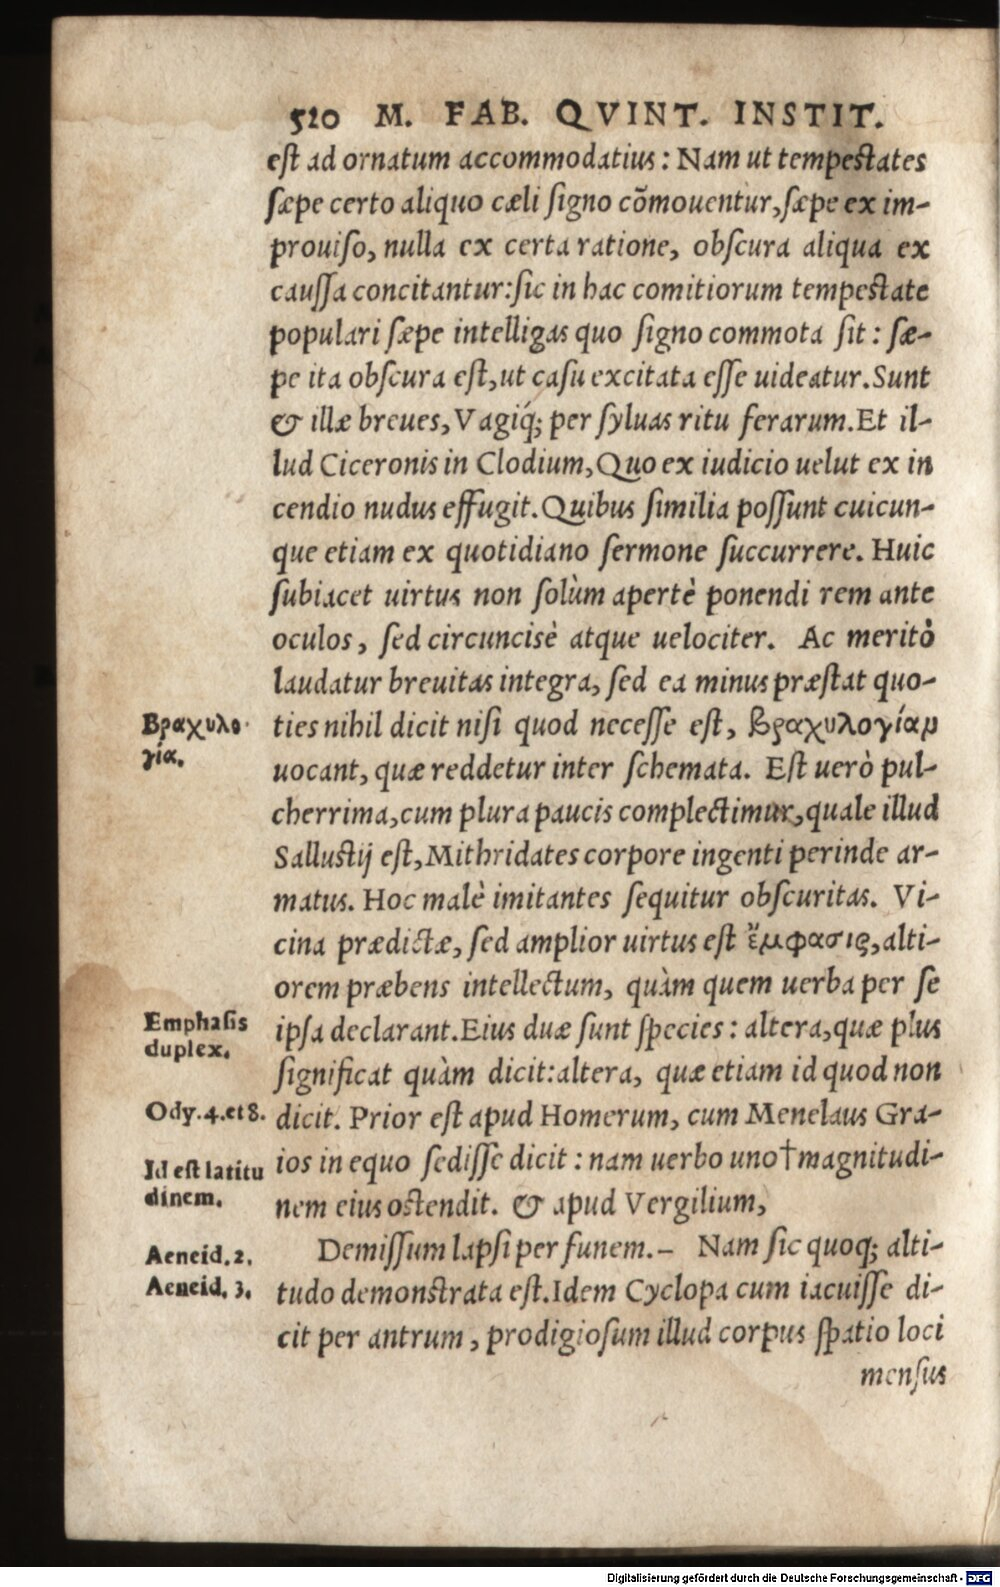 520 M. FAB. QVINT. INSTIT.
est ad ornatum accommodatius: Nam ut tempestates
sæpe certo aliquo cæli signo cõmouentur, sæpe ex im-
prouiso, nulla ex certa ratione, obscura aliqua ex
caussa concitantur: sic in hac comitiorum tempestate
populari sæpe intelligas quo signo commota sit: sæ-
pe ita obscura est, ut casu excitata esse uideatur. Sunt
& illæ breues, Vagiq́; per syluas ritu ferarum. Et il-
lud Ciceronis in Clodium, Quo ex iudicio uelut ex in
cendio nudus effugit. Quibus similia possunt cuicun-
que etiam ex quotidiano sermone succurrere. Huic
subiacet uirtus non solùm apertè ponendi rem ante
oculos, sed circuncisè atque uelociter. Ac meritò
laudatur breuitas integra, sed ea minus præstat quo-
Βραχυλο-
γία.
ties nihil dicit nisi quod necesse est, βραχυλογίαν
uocant, quæ reddetur inter schemata. Est uerò pul-
cherrima, cum plura paucis complectimur, quale illud
Sallustij est, Mithridates corpore ingenti perinde ar-
matus. Hoc malè imitantes sequitur obscuritas. Vi-
cina prædictæ, sed amplior uirtus est ἔμφασις, alti-
orem præbens intellectum, quàm quem uerba per se
Emphasis
duplex.
ipsa declarant. Eius duæ sunt species: altera, quæ plus
significat quàm dicit: altera, quæ etiam id quod non
Ody. 4. et 8.
dicit. Prior est apud Homerum, cum Menelaus Gra-
Id est latitu
dinem.
ios in equo sedisse dicit: nam uerbo uno † magnitudi-
nem eius ostendit. & apud Vergilium,
Aeneid. 2.
Demissum lapsi per funem. – Nam sic quoq; alti-
Aeneid. 3.
tudo demonstrata est. Idem Cyclopa cum iacuisse di-
cit per antrum, prodigiosum illud corpus spatio loci
mensus
Digitalisierung gefördert durch die Deutsche Forschungsgemeinschaft - DFG